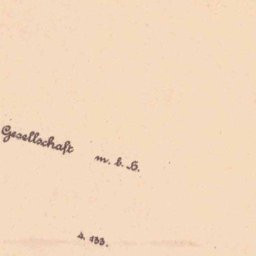 Gesellschaft m. b. H.
s. 133.